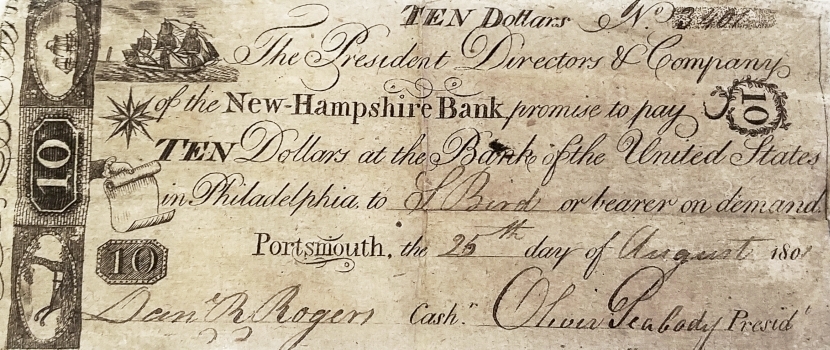 TEN Dollars No
The President Directors & Company
of the New-Hampshire Bank promise to pay
10
TEN Dollars at the Bank of the United States
10
in Philadelphia, to S Bird or bearer on demand.
Portsmouth, the 25th day of August 180
10
Danl R Rogers Cashr. Oliver Peabody Presidt